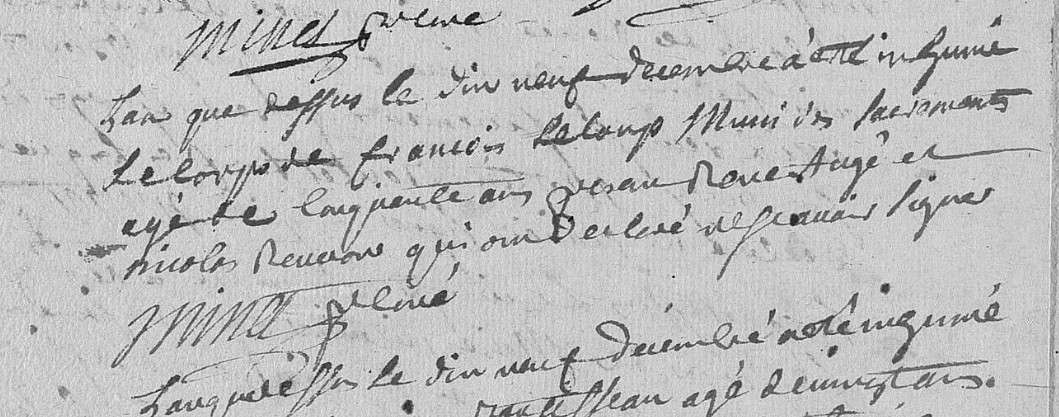 Minet p. curé
Lan que dessus le dix neuf decembre a eté inhumé
le corps de francois Leloup Muni des sacrements
agé de cinquente ans presan René Augé et
nicolas qui ont declaré ne scavoir signer
Minet p. curé
Lan que dessus le dix neuf décembré a eté inhumé
agé de vingt ans.